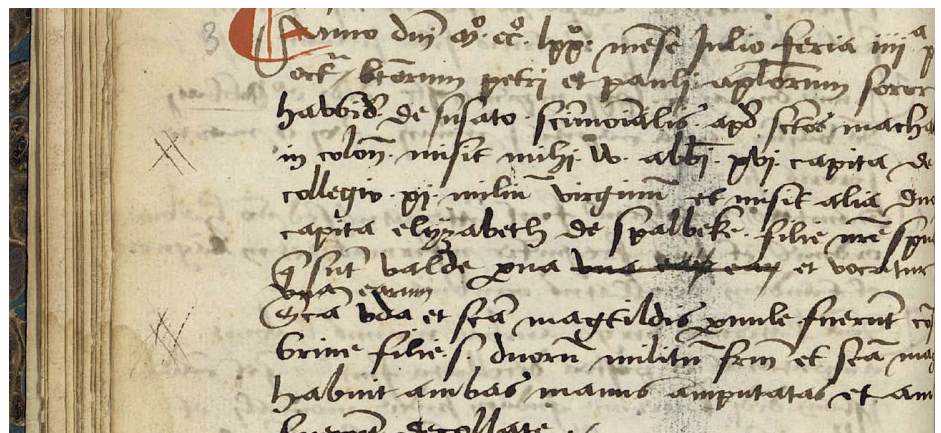 3
Anno dnī mº. ccº. lxxº. mēse Julio feria iiijᵃ p
oct' btorum petri et pauli aplorum soror
hawid' de susato sc̄imoīalis apd sctos macha
in colon̄. misit mihi. W. abbī. xvi capita de
collegio. xi. miliū virginū et misit alia duo
capita elyzabeth de spalbeke. filie nrē spūa
q sūt valde et vocatur
vnā earum
Scā vda et scā magtildis fuerūt cō
brine filie. s. duorū militū frm̄ et scā mag
habuit ambas manus amputatas et am
decollate.